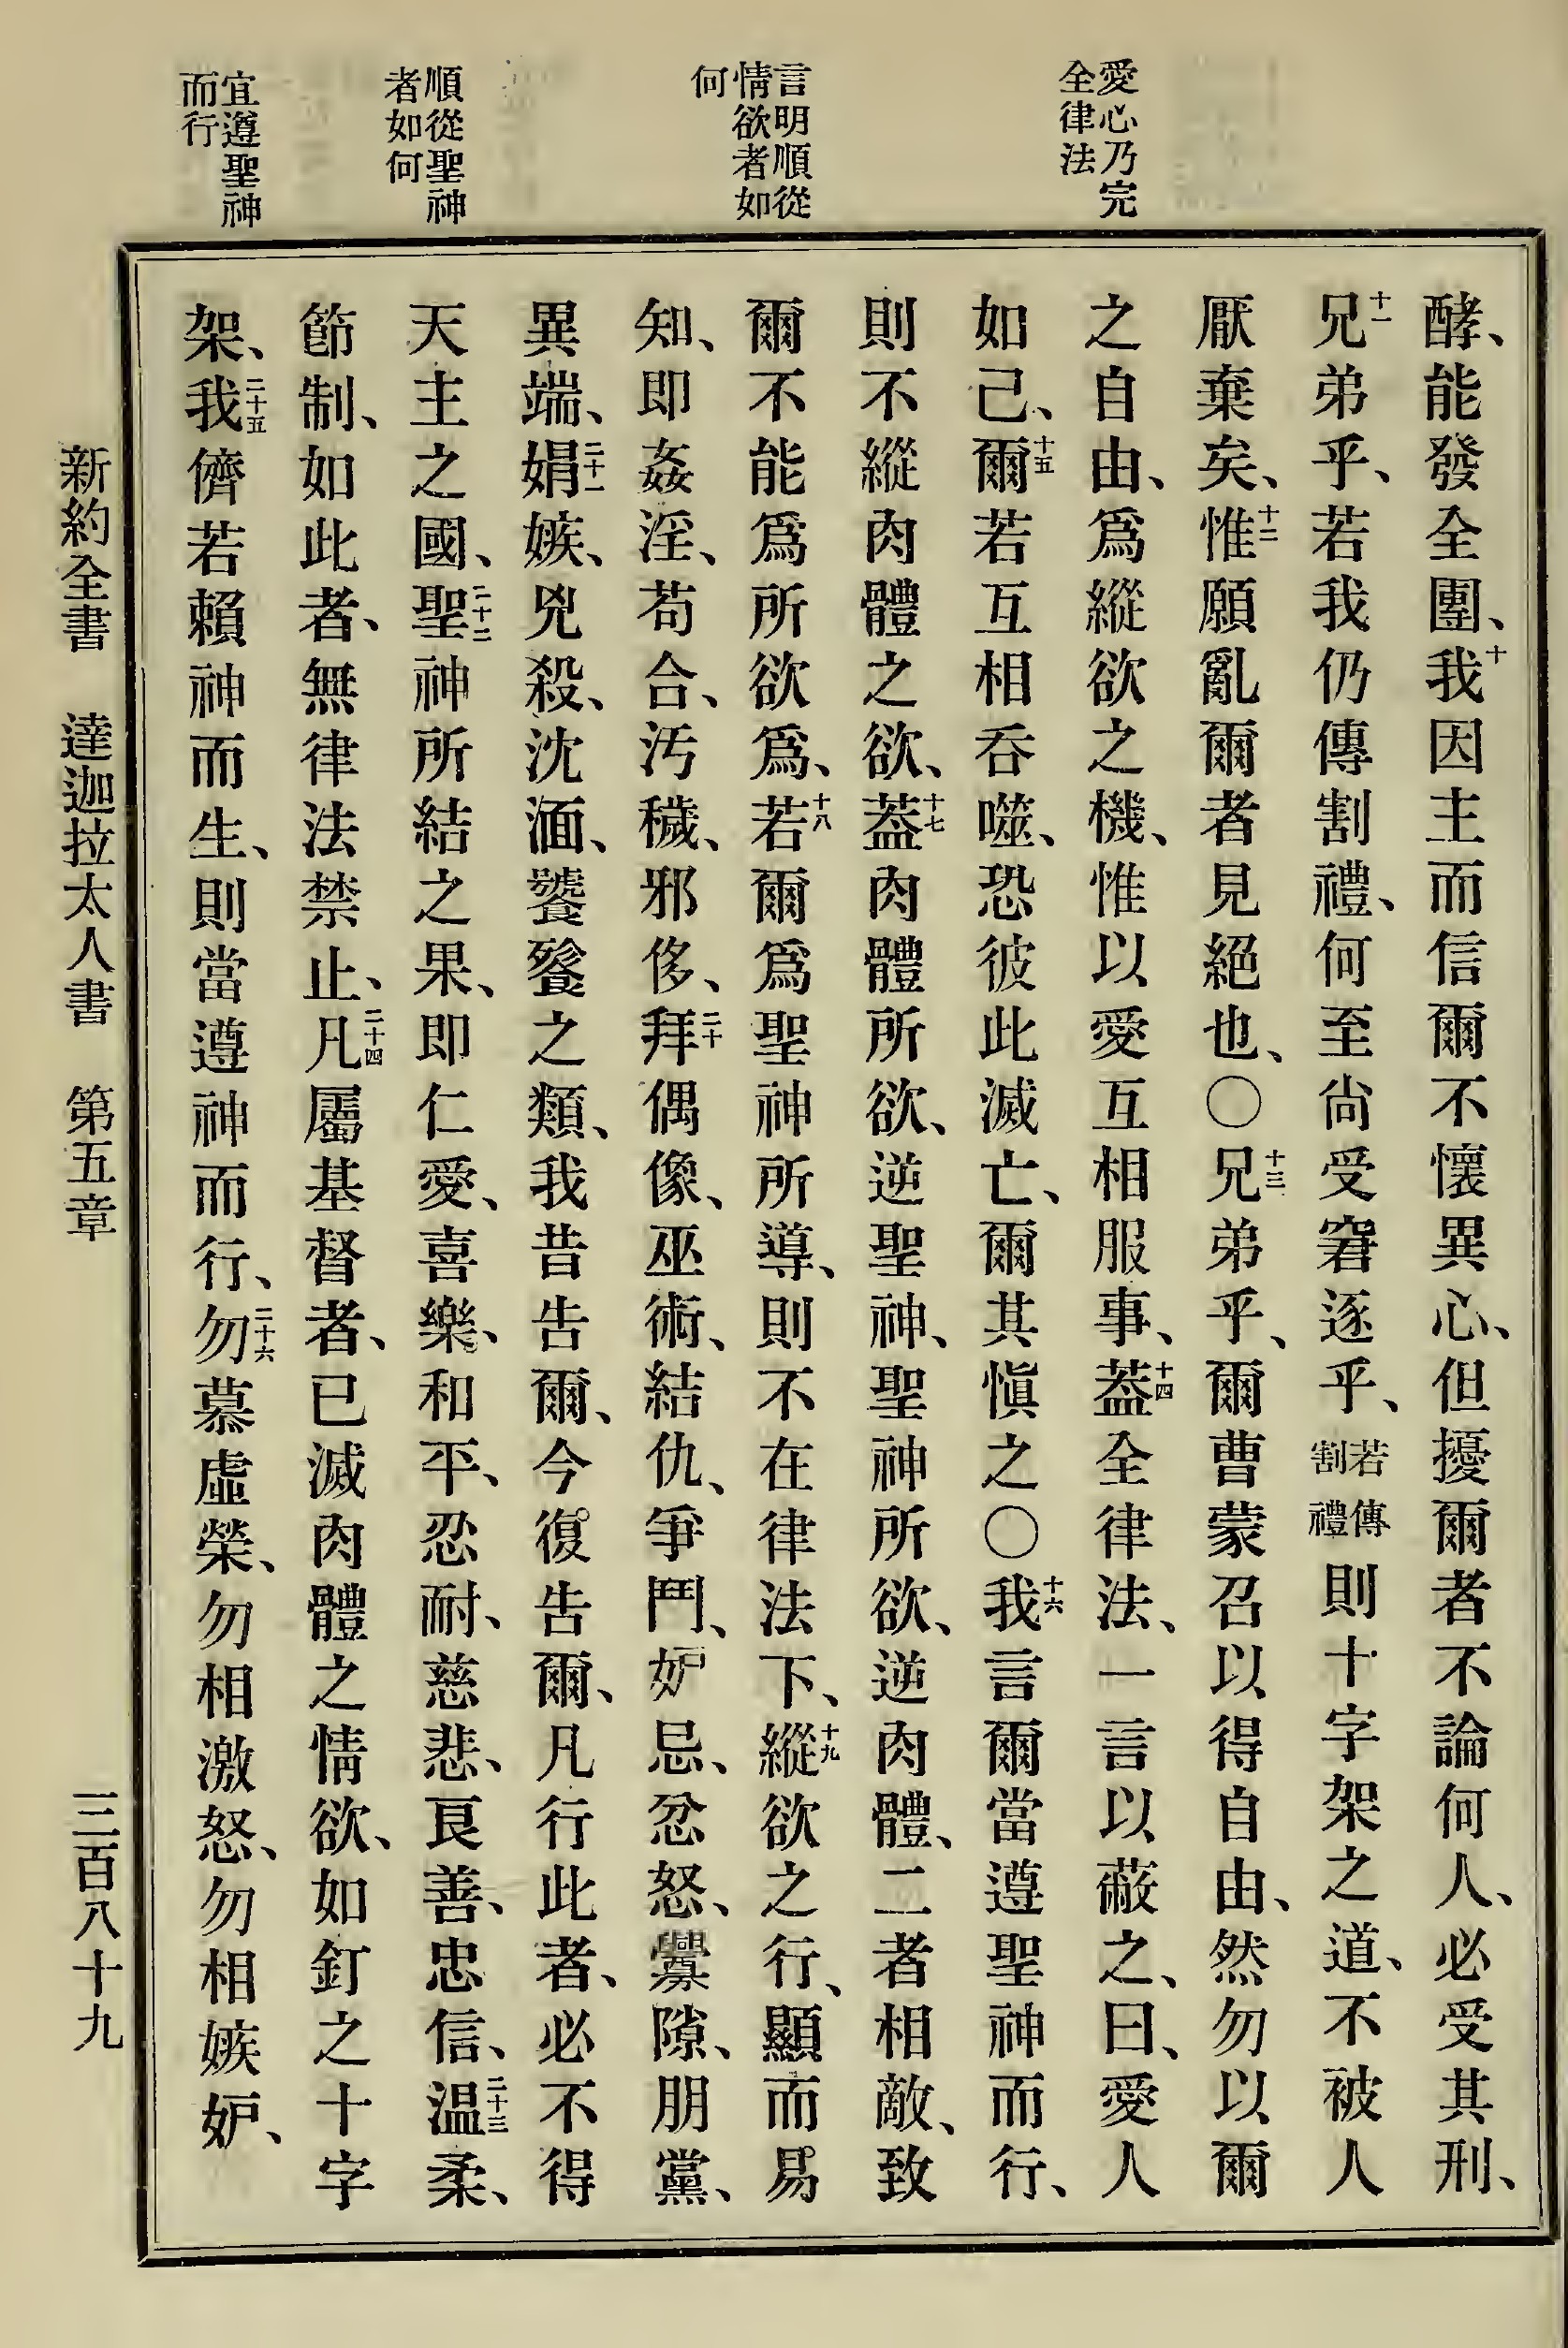 愛心乃完
全律法
言明順從
情欲者如
何
順從聖神
者如何
宜遵聖神
而行
酵、能發全團、十我因主而信爾不懷異心、但擾爾者不論何人、必受其刑、
十一兄弟乎、若我仍傳割禮、何至尙受窘逐乎、若傳割禮則十字架之道、不被人
厭棄矣、十二惟願亂爾者見絕也、〇十三兄弟乎、爾曹蒙召以得自由、然勿以爾
之自由、爲縱欲之機、惟以愛互相服事、十四蓋全律法、一言以蔽之、曰、愛人
如己、十五爾若互相吞噬、恐彼此滅亡、爾其愼之〇十六我言爾當遵聖神而行、
則不縱肉體之欲、十七蓋肉體所欲、逆聖神、聖神所欲、逆肉體、二者相敵、致
爾不能爲所欲爲、十八若爾爲聖神所導、則不在律法下、十九縱欲之行、顯而易
知、即姦淫、苟合、汚穢、邪侈、二十拜偶像、巫術、結仇、爭鬥、妒忌、忿怒、釁隙、朋黨、
異端、二十一娟嫉、兇殺、沈湎、饕餮之類、我昔吿爾、今復吿爾、凡行此者、必不得
天主之國、二十二聖神所結之果、即仁愛、喜樂、和平、忍耐、慈悲、良善、忠信、二十三温柔、
節制、如此者、無律法禁止、二十四凡屬基督者、已滅肉體之情欲、如釘之十字
架、二十五我儕若賴神而生、則當遵神而行、二十六勿慕虛榮、勿相激怒、勿相嫉妒、
新約全書 達迦拉太人書 第五章 三百八十九